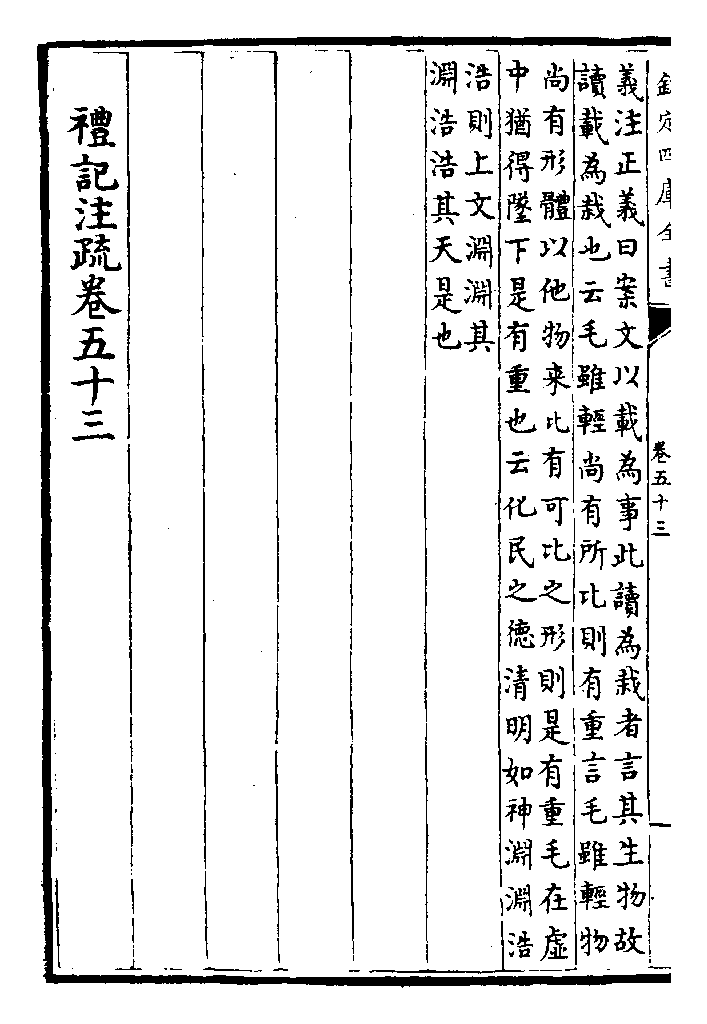 欽定四庫全書
卷五十三
義注正義曰案文以載為事此讀為栽者言其生物故
讀載為栽也云毛雖輕尚有所比則有重言毛雖輕物
尚有形體以他物来比有可比之形則是有重毛在虛
中猶得墜下是有重也云化民之德清明如神淵淵浩
浩則上文淵淵其
淵浩浩其天是也
禮記注疏卷五十三